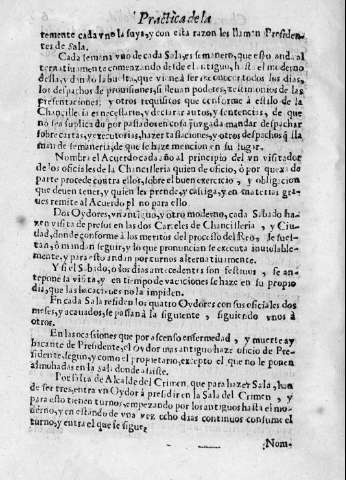 Practica de la
temente cada vno la suya, y con esta razon les llaman Presiden-
tes de Sala.
Cada semana vno de cada Sala, es semanero, que esto anda al
ternatiuamente començando desde el antiguo, hasta el moderno
della, y dando la buelta, que viene à ser concurrto dos los dias,
los despachos de prouisiones, si lleuan poderes, testimonios de las
presentaciones, y otros requisitos que conforme à estilo de la
Chancille ia es necessario, y declarar autos, y sentencias, de que
no sea suplicado por passados en cosa juzgada mandar despachar
sobrecartas, y executorias, hazer tassaciones, y otros despachos q̃ lla
man de semaneria, de que se haze mencion en su lugar.
Nombra el Acuerdo cada año al principio del vn visitador
de los oficiales de la Chancilleria quien de oficio, ò por quexa de
parte procede contra ellos, sobre el buen exercicio, y obligacion
que deuen tener, y quien les prende, y castiga, y en materias gra-
ues remite al Acuerdo pleno para ello
Dos Oydores, vn antiguo, y otro moderno, cada Sabado ha-
zen visita de presos en las dos Carceles de Chancilleria, y Ciu-
dad, donde conforme à los meritos del processo del Reo, le suel-
tan, ò mandan seguir, y lo que pronuncian se executa inuiolable-
mente, y para esto andan por turnos alternatiuamente.
Y si el Sabado, o los dias antecedentes son festiuos, se an-
tepone la visita, y en tiempo de vacaciones se haze en su propio
dia, que las vacaciones no la impiden.
En cada Sala residen los quatro Oydores con sus oficiales dos
meses, y acauados, se passan à la siguiente, siguiendo vnos à
otros.
En las ocasiones que por ascenso enfermedad, y muerte ay
bacante de Presidente, el Oydor mas antiguo haze oficio de Pre-
sidente, segun, y como el propietario, excepto el que no le ponen
almohadas en la sala donde assiste.
Por falta de Alcalde del Crimen, que para hazer Sala, han
de ser tres, entra vn Oydor à presidir en la Sala del Crimen, y
para esto tienen turnos, empezando por los antiguos hasta el mo-
derno, y en estando de vna vez ocho dias continuos consume el
turno, y entra el que se sigue
Nom-